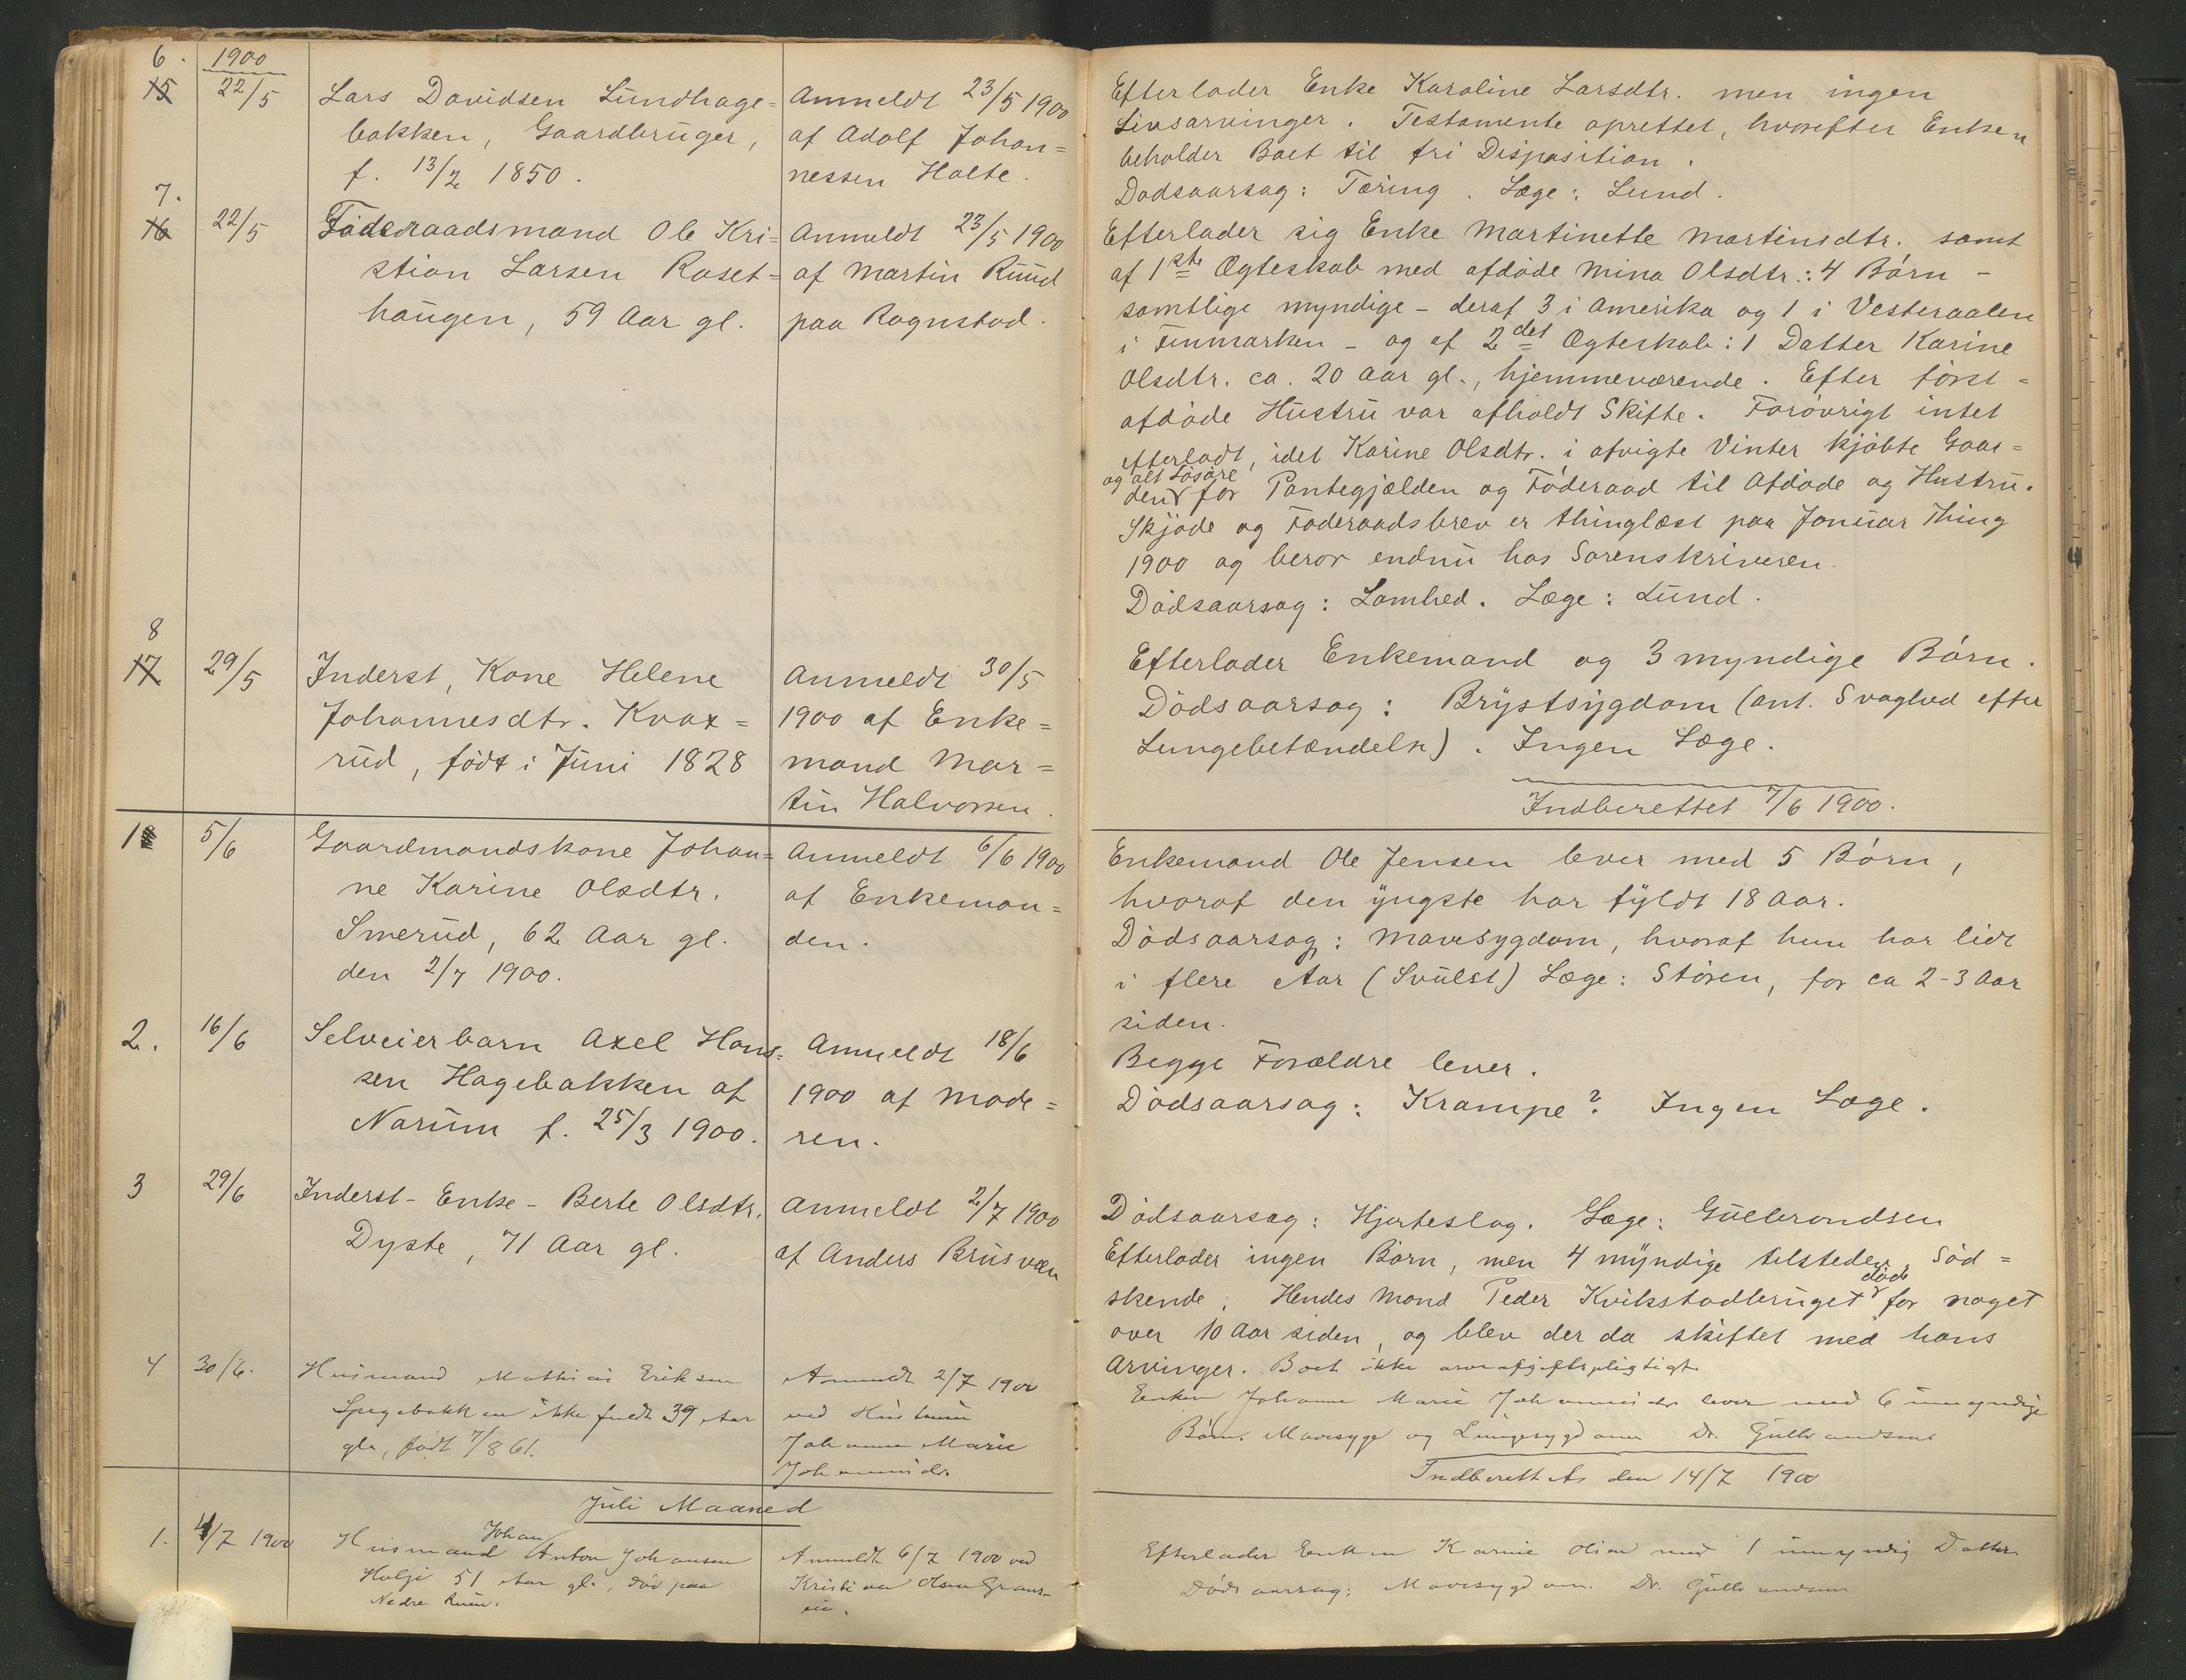 6. 1900
15 22/5 Lars Davidsen Lundhage=
bakken, Gaardbruger,
f. 13/2 1850.
Anmeldt 23/5 1900
af Adolf Johan=
nessen Holte.
Efterlader Enke Karoline Larsdtr. men ingen
Livsarvinger. Testamente oprettet, hvorefter Enken
beholder Boet til fri Disposition.
Dødsaarsag: Tæring. Læge: Lund.
7.
16 22/5 Føderaadsmand Ole Kri=
stian Larsen Roset=
haugen, 59 Aar gl.
Anmeldt 23/5 1900
af Martin Ruud
paa Rognstad.
Efterlader sig Enke Martinette Martinsdtr. samt
af 1ste Ægteskab med afdøde Mina Olsdtr.: 4 Børn -
samtlige myndige - deraf 3 i Amerika og 1 i Vesteraalen
i Finmarken - og af 2det Ægteskab: 1 Datter Karine
Olsdtr. ca. 20 Aar gl., hjemmeværende. Efter først=
afdøde Hustru var afholdt Skifte. Forøvrigt intet
efterladt, idet Karine Olsdtr. i afvigte Vinter kjøbte Gaar=
og alt Løsøre
den for Pantegjælden og Føderaad til Afdøde og Hustru.
Skjøde og Føderaadsbrev er thinglæst paa Januar Thing
1900 og beror endnu hos Sorenskriveren.
Dødsaarsag: Lamhed. Læge: Lund.
8
17 29/5 Inderst, Kone Helene
Johannesdtr. Kvax=
rud, født i Juni 1828
Anmeldt 30/5
1900 af Enke=
mand Mar=
tin Halvorsen.
Efterlader Enkemand og 3 myndige Børn.
Dødsaarsag: Brystsygdom (ant. Svaghed efter
Lungebetændelse). Ingen Læge.
Indberettet 7/6 1900.
1 5/6 Gaardmandskone Johan=
ne Karine Olsdtr.
Smerud, 62 Aar gl.
den 2/7 1900.
Anmeldt 6/6 1900
af Enkeman=
den.
Enkemand Ole Jensen lever med 5 Børn,
hvoraf den yngste har fyldt 18 Aar.
Dødsaarsag: Mavesygdom, hvoraf hun har lidt
i flere Aar (Svulst) Læge: Støren, for ca 2-3 Aar
siden.
2. 16/6 Selveierbarn Axel Hans=
sen Hagebakken af
Narum f. 25/3 1900.
Anmeldt 18/6
1900 af Mode=
ren.
Begge Forældre lever.
Dødsaarsag: Krampe? Ingen Læge.
3 29/6 Inderst- Enke - Berte Olsdtr.
Dyste, 71 Aar gl.
Anmeldt 2/7 1900
af Anders Brusveen
Dødsaarsag: Hjerteslag. Læge: Gulbrandsen
Efterlader ingen Børn, men 4 myndige tilstedev. Sød=
skende. Hendes Mand Peder Kvikstadbruget døde for noget
over 10 Aar siden, og blev der da skiftet med hans
Arvinger. Boet ikke arveafgiftspligtigt.
4 30/6. Husmand Mathias Eriksen
Spegebakken ikke fuldt 39 Aar
gl., født 7/8 61.
Anmeldt 2/7 1900
ved Hustruen
Johanne Marie
Johannesdtr.
Enken Johanne Marie Johannesdtr lever med 6 umyndige
Børn. Mavesyge og Lungesygdom Dr. Gulbrandsen
Indberettet den 14/7 1900
Juli Maaned
1. 4/7 1900 Husmand Johan Anton Johansen
51 Aar gl., død paa
Nedre
Anmeldt 6/7 1900 ved
Kristian Olsen
Efterlader Enken Karine Olsen med 1 umyndig Datter.
Dødsaarsag: Mavesygdom. Dr. Gulbrandsen